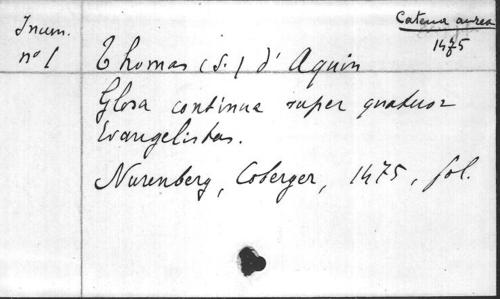 Inum.
n° 1
Catena aurea
1475
Thomas (S.) d'Aquin
Glosa continua super quatuor
Evangelistas.
Nurenberg, Coberger, 1475, fol.